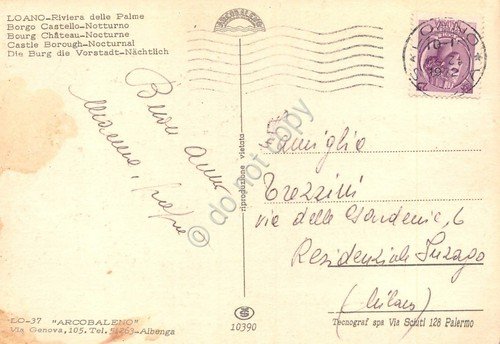 LOANO-Riviera delle Palme
Borgo Castello-Notturno
Bourg Château-Nocturne
Castle Borough-Nocturnal
Die Burg die Vorstadt-Nächtlich
Buon anno
Famiglia
Trezzini
via delle Gardenie, 6
Residenziale Inzago
(Milano)
riproduzione vietata
© do not copy
LO-37 "ARCOBALENO"
Via Genova, 105, Tel. 51263-Albenga
10390
Tecnograf spa Via Sciuti 128 Palermo